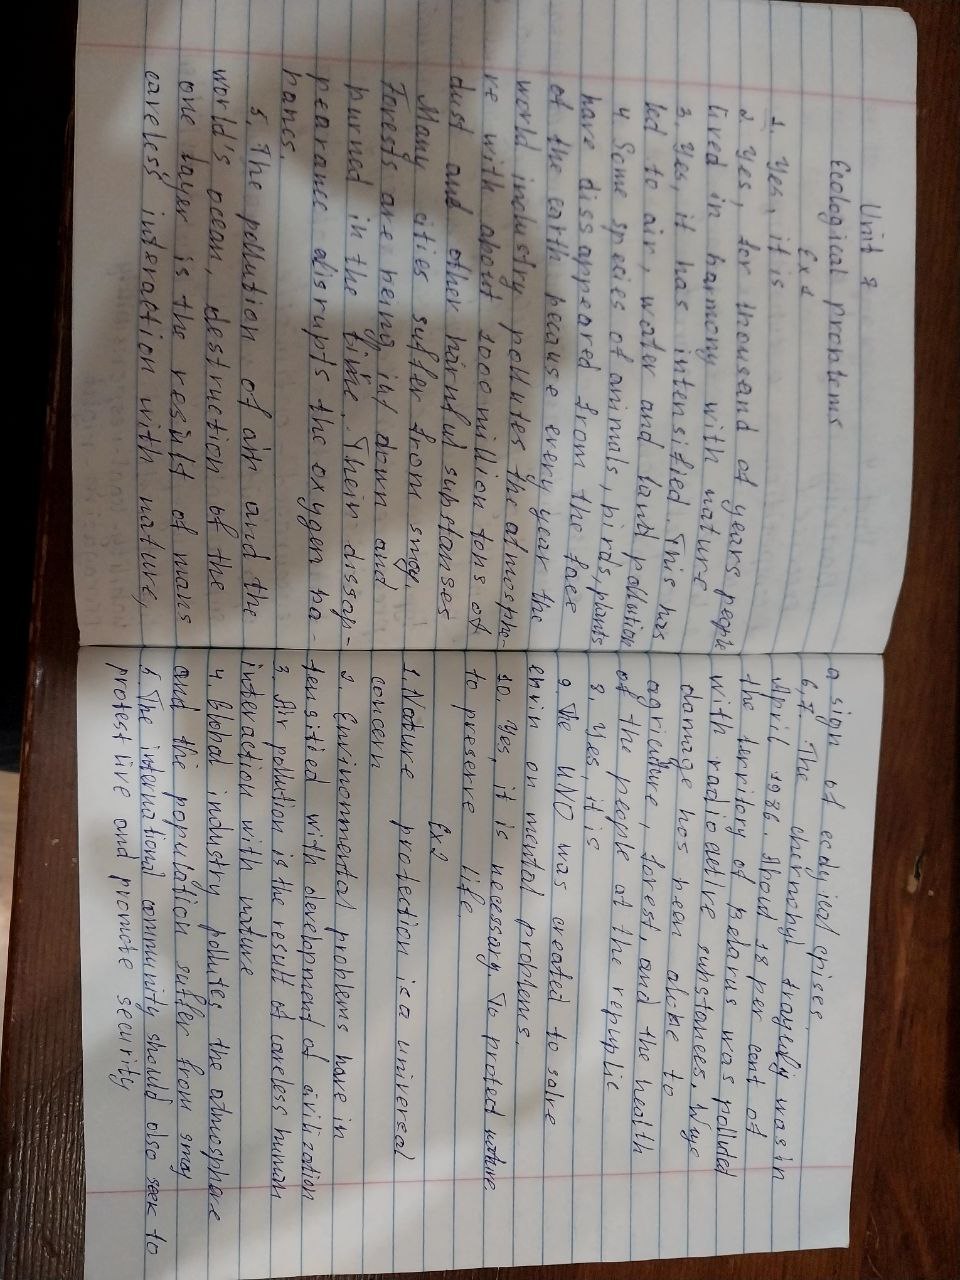 Unit 8
Ecological problems
Ex 1
1. Yes, it is
2. Yes, for thousand of years people
lived in harmony with nature
3. Yes, it has intensified. This has
led to air, water and land pollution
4 Some species of animals, birds, plants
have dissappeared from the face
of the earth because every year the
world industry pollutes the atmosphe-
re with about 1000 million tons of
dust and other harmful substanses
Many cities suffer from smog,
Forests are being cut down and
burned in the time. Their dissap-
pearance disrupts the oxygen ba-
lance.
5. The pollution of air and the
world's ocean, destruction of the
one layer is the result of mans
careless interaction with nature,
a sign of ecological crises.
6,7. The chernobyl tragedy was in
April 1986. About 18 per cent of
the territory of Belarus was polluted
with radioactive substances. Huge
damage has been done to
agriculture, forest, and the health
of the people of the republic
8. Yes, it is
9. The UNO was created to solve
environmental problems.
10. Yes, it is necessary to protect nature
to preserve life.
Ex 2
1. Nature protection is a univereal
concern
2. Environmental problems have in
tensified with development of civilization
3. Air pollution is the result of careless human
interaction with nature
4. Global industry pollutes the atmosphere
and the population suffer from smog
5 The international community should also seek to
protestive and promote security